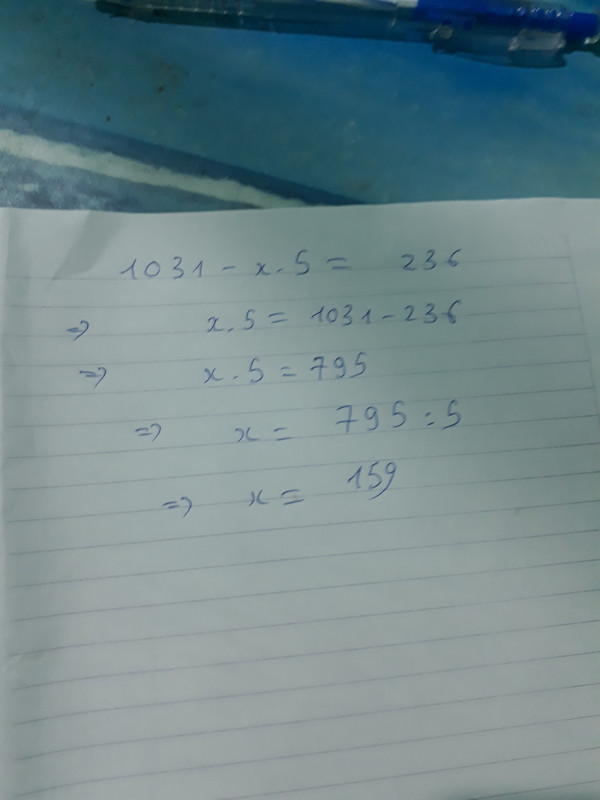 1031 - x . 5 = 236
=> x . 5 = 1031 - 236
=> x . 5 = 795
=> x = 795 : 5
=> x = 159